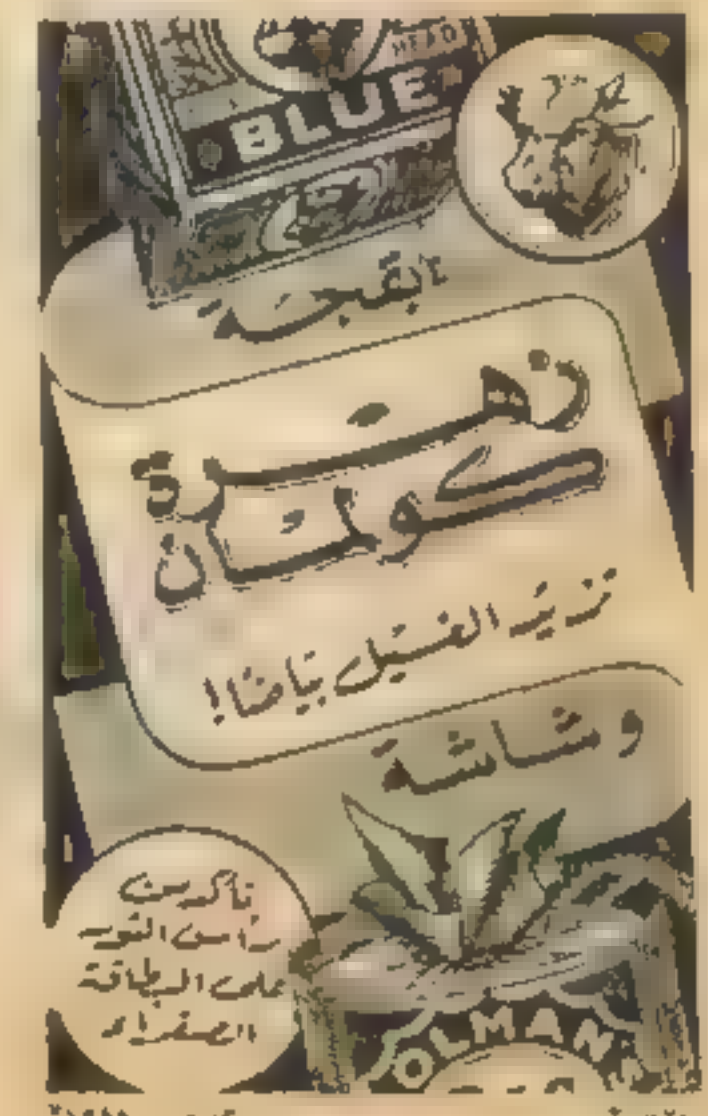 HEAD
BLUE
بقجة
زهرة
كولمان
تزيد الغسيل بياضا!
وشاشة
تأكدي من
رأس الثور
على البطاقة
الصفراء
OLMAN